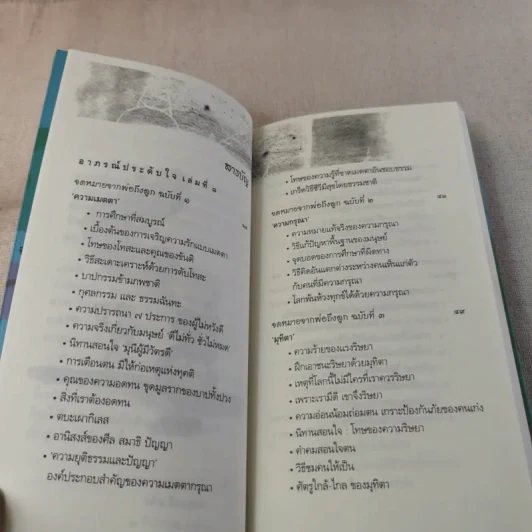 สารบัญ
อาภรณ์ประดับใจ เล่มที่ ๑
จดหมายจากพ่อถึงลูก ฉบับที่ ๑
"ความเมตตา"
• การศึกษาที่สมบูรณ์
• เบื้องต้นของการเจริญความรักแบบเมตตา
• โทษของโทสะและคุณของขันติ
• วิธีสะเดาะเคราะห์ด้วยการดับโทสะ
• บาปกรรมข้ามภพชาติ
• กุศลกรรม และ ธรรมฉันทะ
• ความปรารถนา ๗ ประการ ของผู้ไม่หวังดี
• ความจริงเกี่ยวกับมนุษย์ 'ดีไม่ทั่ว ชั่วไม่หมด'
• นิทานสอนใจ 'มุนีผู้มีวัตรดี'
• การเตือนตน มิให้ก่อเหตุแห่งทุคติ
• คุณของความอดทน ขุดมูลรากของบาปทั้งปวง
• สิ่งที่เราต้องอดทน
• ตบะเผากิเลส
• อานิสงส์ของศีล สมาธิ ปัญญา
• 'ความยุติธรรมและปัญญา'
องค์ประกอบสำคัญของความเมตตากรุณา
• โทษของความรู้ที่ขาดเมตตาอันชอบธรรม
• เกร็ดวิธีชีวิมีสุขโดยธรรมชาติ
จดหมายจากพ่อถึงลูก ฉบับที่ ๒
"ความกรุณา"
• ความหมายแท้จริงของความกรุณา
• วิธีแก้ปัญหาพื้นฐานของมนุษย์
• จุดบอดของการศึกษาที่ผิดทาง
• วิธีคิดอันแตกต่างระหว่างคนเห็นแก่ตัว
กับคนที่มีความกรุณา
• โลกพ้นห้วงทุกข์ได้ด้วยความกรุณา
จดหมายจากพ่อถึงลูก ฉบับที่ ๓ ๔๙
"มุทิตา"
• ความร้ายของแรงริษยา
• ฝึกเอาชนะริษยาด้วยมุทิตา
• เหตุที่โลกนี้ไม่มีใครที่เราควรริษยา
• เพราะเรามีดี เขาจึงริษยา
• ความอ่อนน้อมถ่อมตน เกราะป้องกันภัยของคนเก่ง
• นิทานสอนใจ : โทษของความริษยา
• คำคมสอนใจตน
• วิธีชมคนให้เป็น
• ศัตรูใกล้-ไกล ของมุทิตา